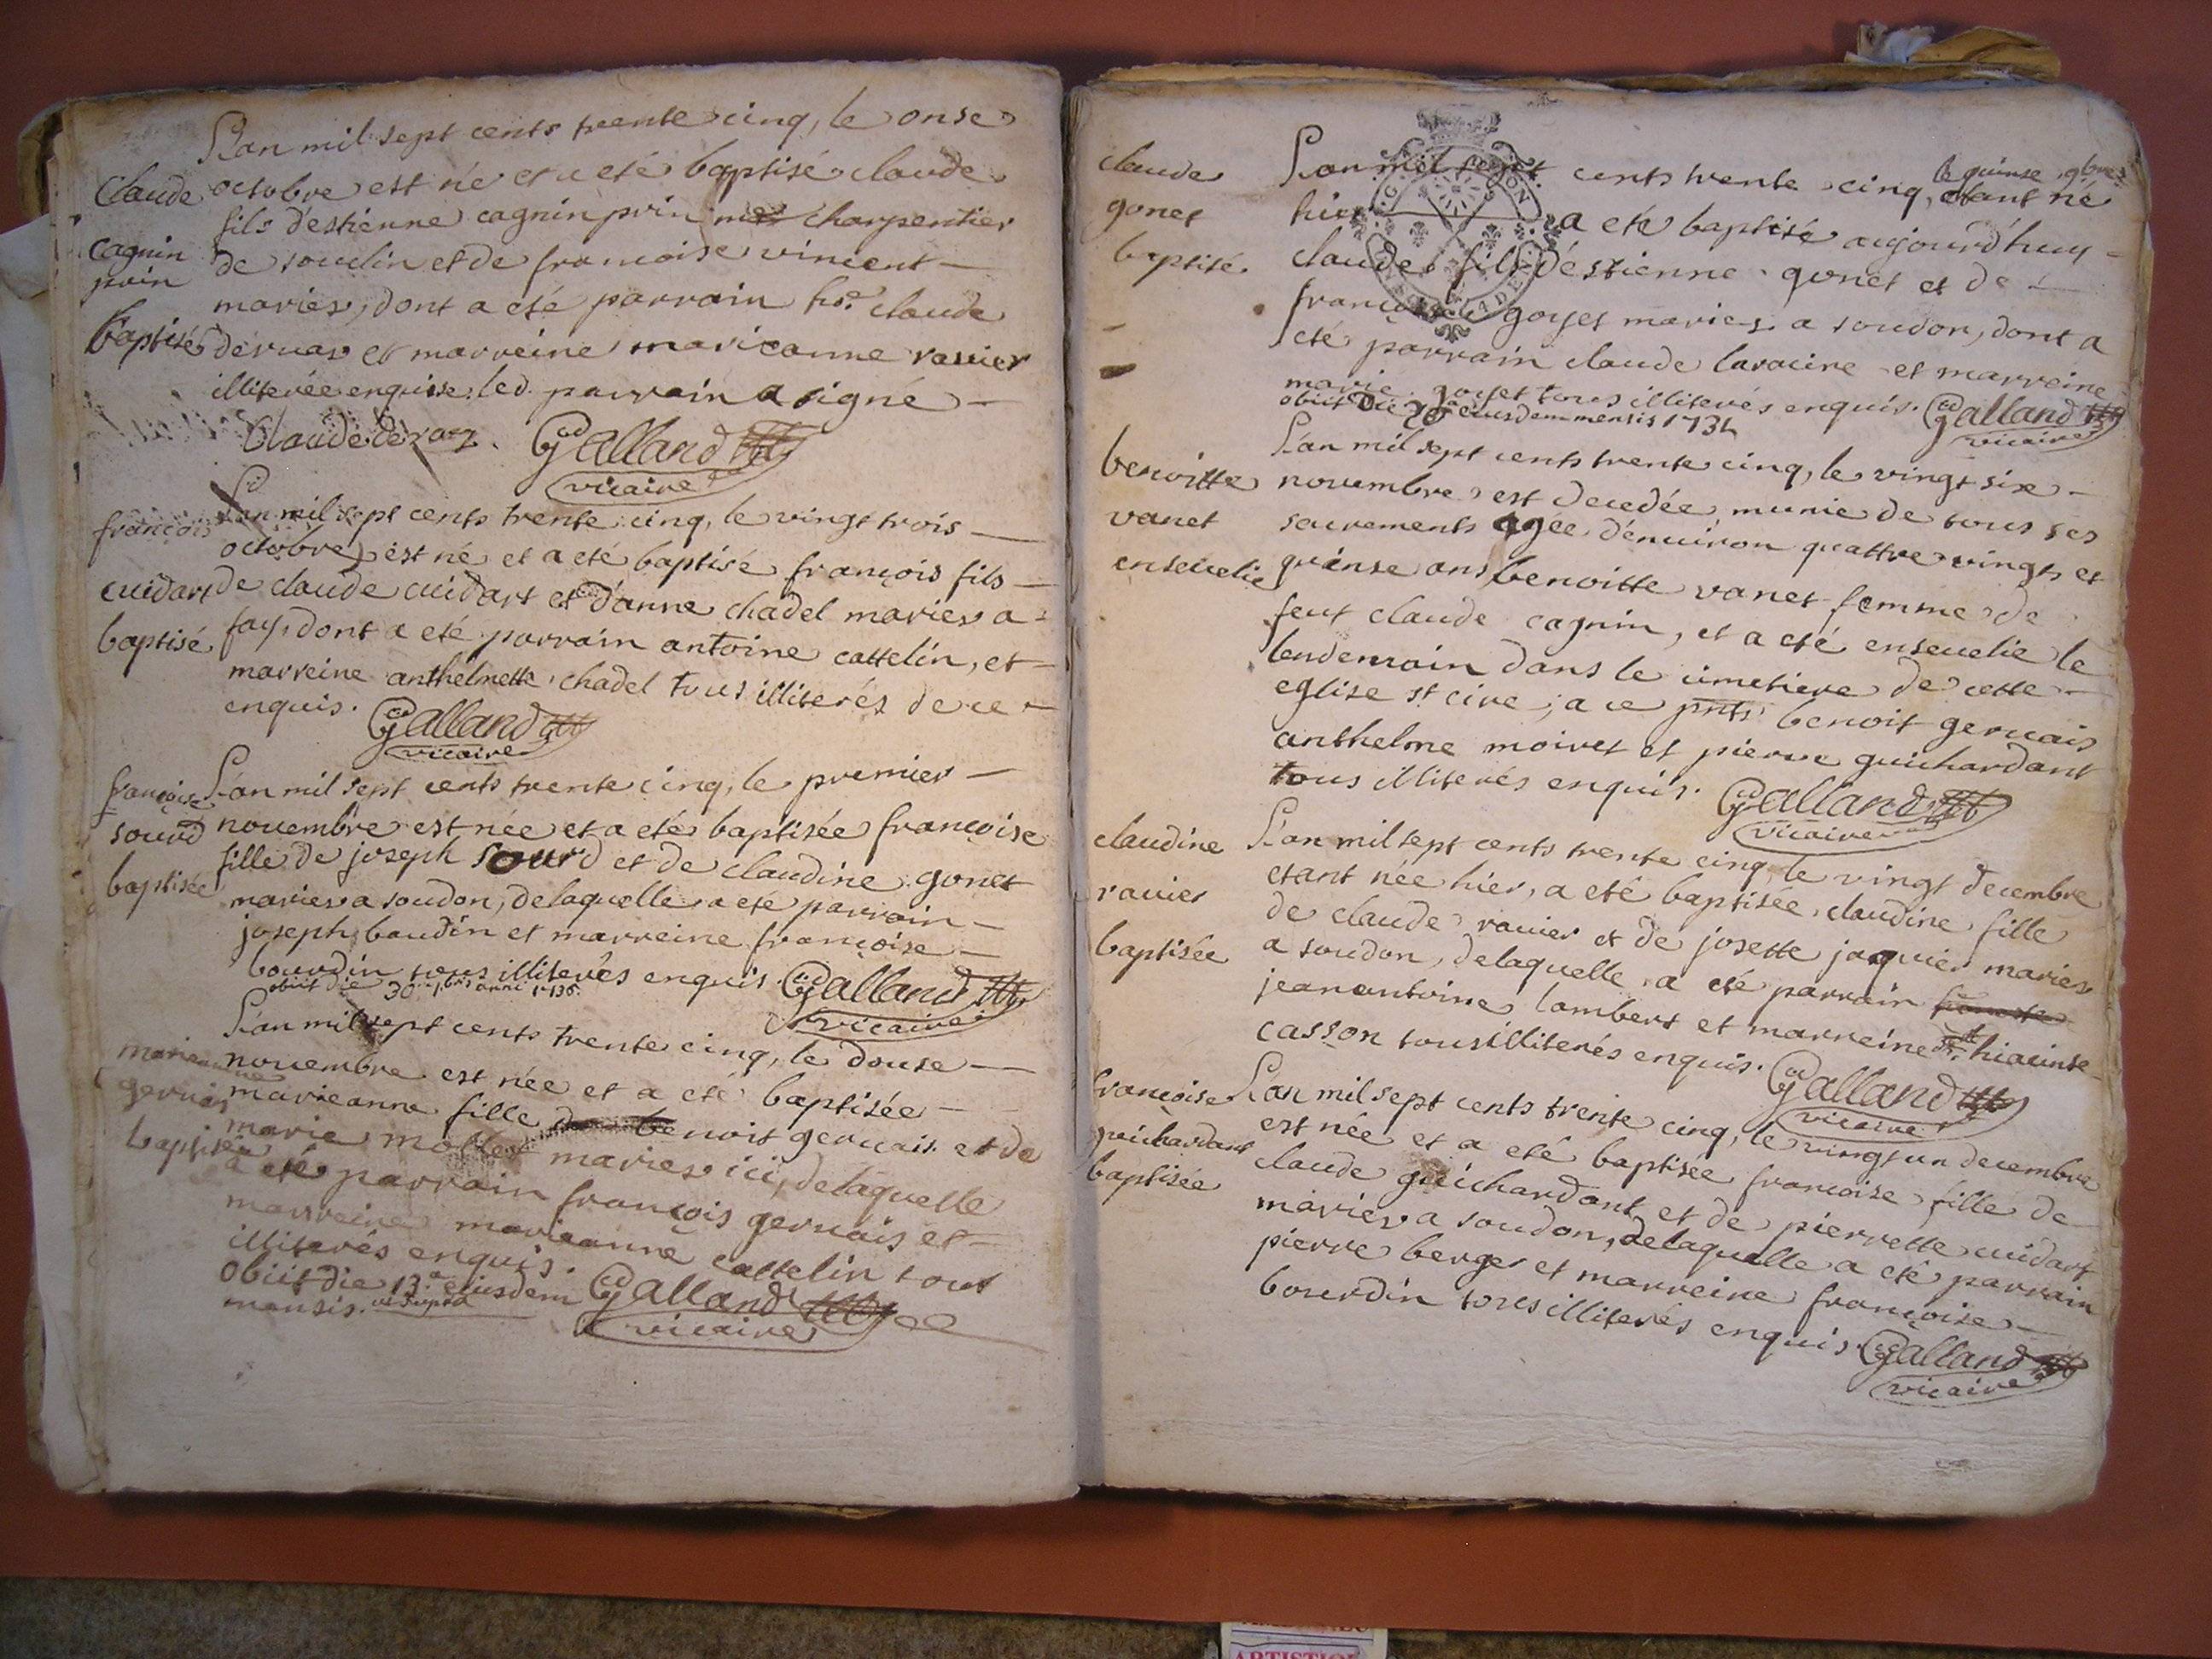 L'an mil sept cents trente cinq, le onse
claude
octobre est né et a eté baptisé claude
fils d'estienne cagnin prin charpentier
cagnin
prin
de soudin et de francoise vincent
mariés, dont a eté parrain claude
baptisé
deruas et marreine marieanne ravier
illiterée enquise. led. parrain a signé
Claude
Galland
vicaire
L'an mil sept cents trente cinq, le vingt trois
françois
octobre est né et a eté baptisé françois fils
cuidart
de claude cuidart et d'anne chadel mariés a
baptisé
fay, dont a eté parrain antoine cattelin, et
marreine anthelmette chadel tous illiterés de ce
enquis. Galland
vicaire
françoise
L'an mil sept cents trente cinq, le premier
sourd
novembre est née et a eté baptisée françoise
fille de joseph sourd et de claudine gonet
baptisée
mariés a soudon, delaquelle a eté parrain
joseph baudin et marreine françoise
bourdin tous illiterés enquis. Galland
obiit die 30 anni 1736.
vicaire
L'an mil sept cents trente cinq, le douse
marieanne
novembre est née et a eté baptisée
gervais
marieanne fille de benoit gervais et de
baptisée
marie mollet mariés ici, delaquelle
a eté parrain françois gervais et
marreine marieanne cattelin tous
illiterés enquis.
obiit die 13.a eiusdem Galland
mensis. ut supra
vicaire
claude
L'an mil sept cents trente cinq, le quinse 9bre
gonet
hier a eté baptisé aujourd'huy
etant né
baptisé
claude fils d'éstienne gonet et de
françoise goyet mariés a soudon, dont a
eté parrain claude laracine et marreine
marie goyet tous illiterés enquis. Galland
obiit die 20 eiusdem mensis
vicaire
L'an mil sept cents trente cinq, le vingt six
benoitte
novembre est decedée munie de tous ses
vanet
sacrements agée d'environ quattre vingts et
ensevelie
quinse ans benoitte vanet femme de
feut claude cagnin, et a eté ensevelie le
lendemain dans le cimetiere de cette
eglise st cire, a ce pnts benoit gervais
anthelme moiret et pierre guichardant
tous illiterés enquis. Galland
vicaire
claudine
L'an mil sept cents trente cinq, le vingt decembre
ravier
etant née hier, a eté baptisée claudine fille
de claude ravier et de josette jaquier mariés
baptisée
a soudon, delaquelle a eté parrain
jeanantoine lambert et marreine hiacinse
casson tous illiterés enquis. Galland
vicaire
françoise
L'an mil sept cents trente cinq, le vingt un decembre
guichardant
est née et a eté baptisée francoise fille de
baptisée
claude guichardant et de pierrette cuidart
mariés a soudon, delaquelle a eté parrain
pierre berger et marreine françoise
bourdin tous illiterés enquis. Galland
vicaire